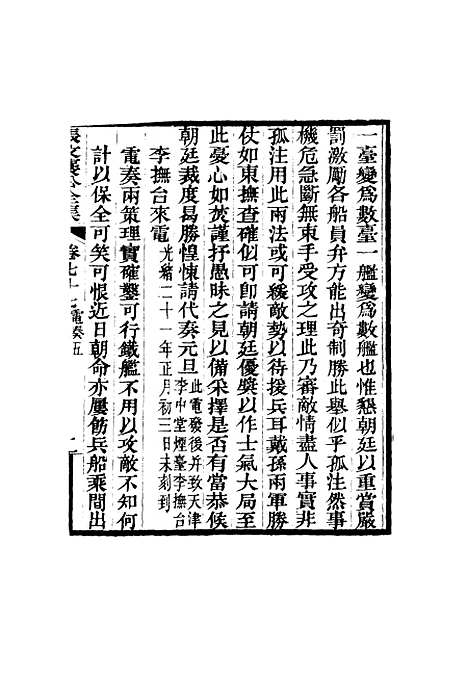 一臺變爲數臺一艦變爲數艦也惟懇朝廷以重賞嚴
罰激勵各船員弁方能出奇制勝此舉似乎孤注然事
機危急斷無束手受攻之理此乃審敵情盡人事實非
孤注用此兩法或可緩敵勢以待援兵耳戴孫兩軍勝
仗如東撫查確似可卽請朝廷優奬以作士氣大局至
此憂心如焚謹抒愚昧之見以備采擇是否有當恭候
朝廷裁度曷勝惶悚請代奏元旦此電發後并致天津李中堂煙臺李撫台
李撫台來電光緒二十一年正月初三日未刻到
電奏兩策理實確鑿可行鐵艦不用以攻敵不知何
計以保全可笑可恨近日朝命亦屢飭兵船乘間出
張文襄公全集
卷七十七電奏五